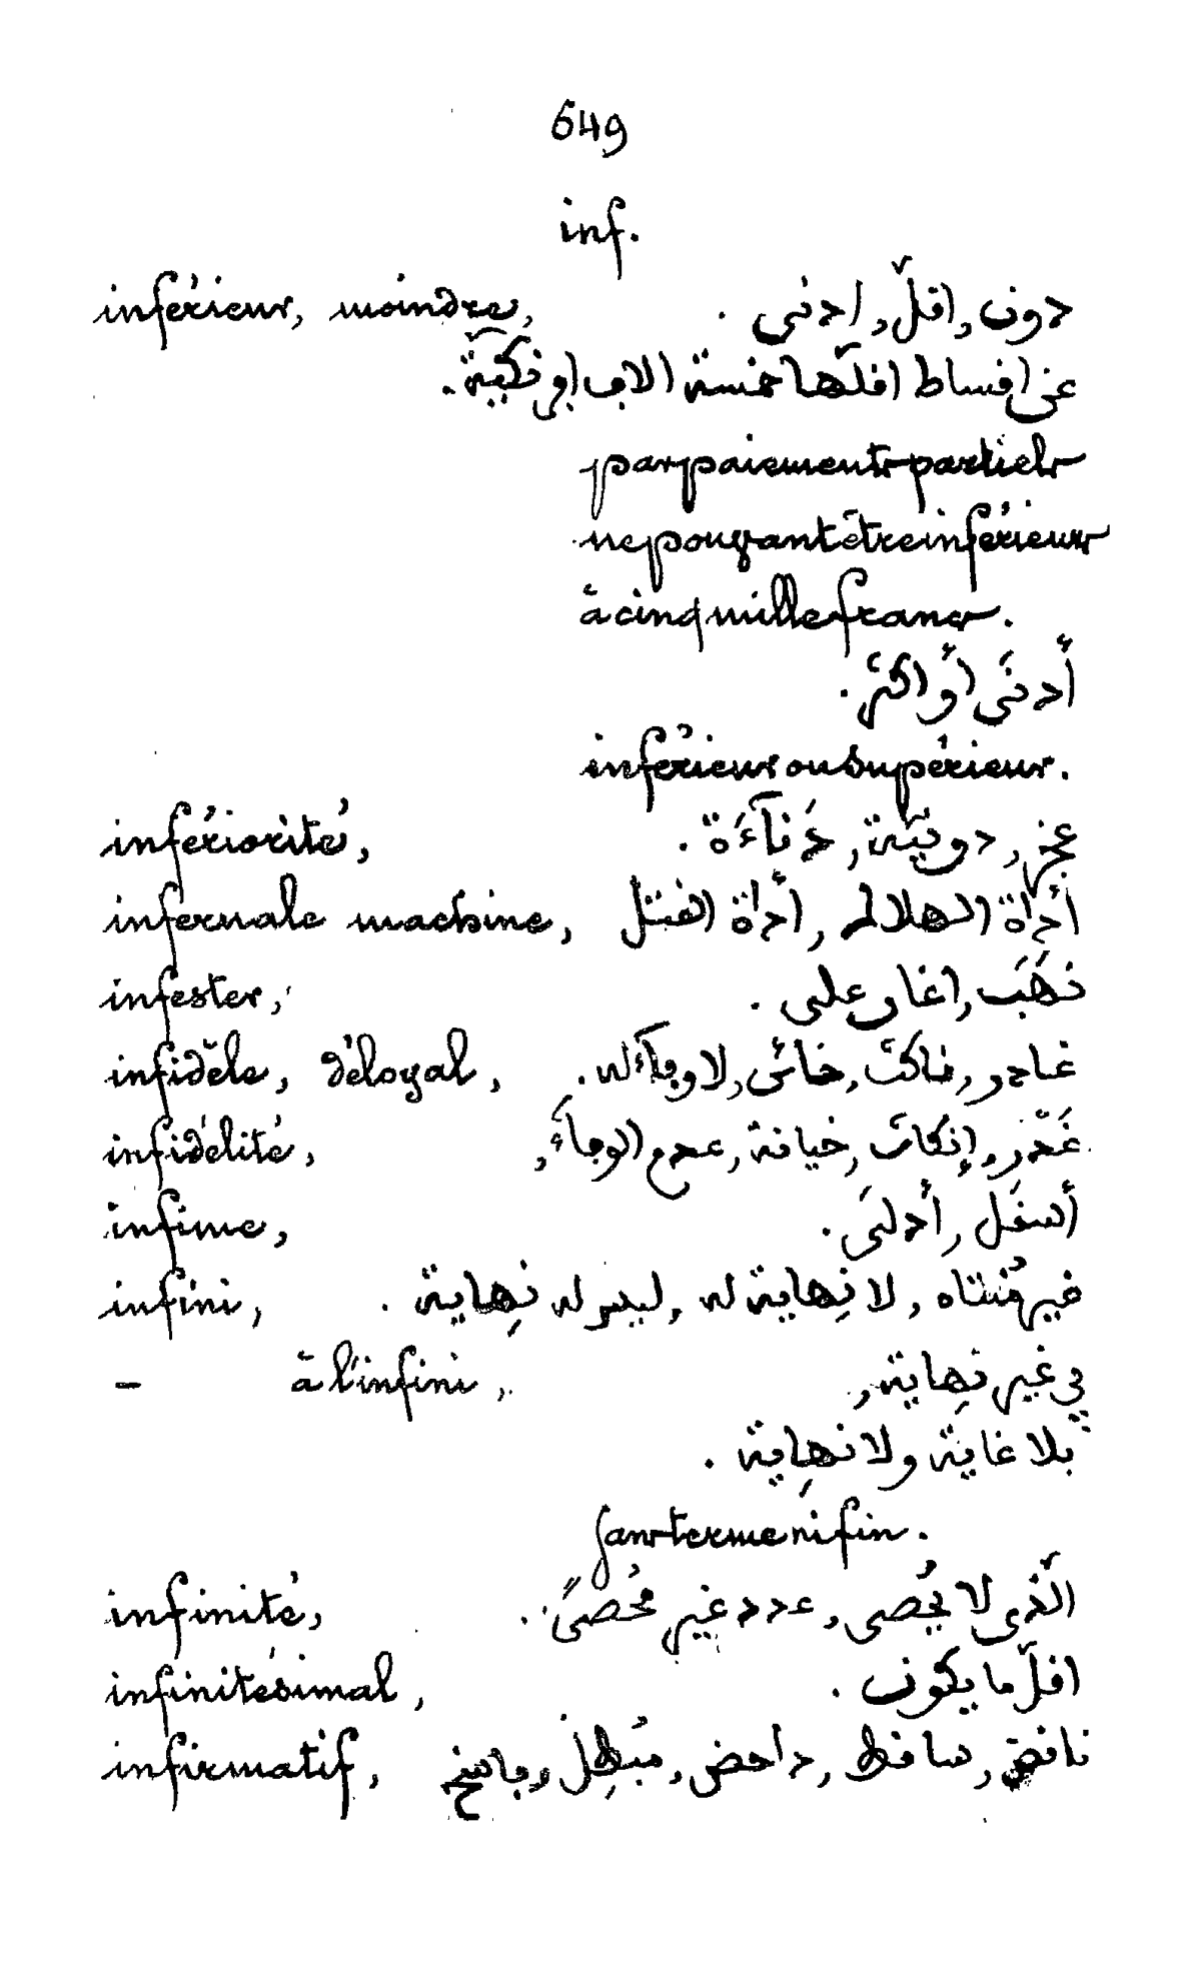 649
inf.
inférieur, moindre, دون, اقلّ, ادنى .
عن اقساط اقلّها خمسة الاف افرنكيّة.
par paiements partiels
ne pouvant être inférieurs
à cinq mille francs.
أدنَى أو اكثر.
inférieur ou supérieur.
infériorité, عجز, دونيّة, دَنآءَة .
infernale machine, أداة الهلاك, أداة القتل
infester, نَهَبَ, اغار على .
infidèle, déloyal, غادر, ناكث, خائن, لا وفآء له .
infidélité, غَدْر, إنكاث, خيانة, عدم الوفآء,
infime, أسفَل, أدنَى .
infini, غير مُتناه, لا نِهاية له, ليس له نِهاية .
– à l'infini, في غير نِهاية,
بلا غاية ولا نِهاية .
sans terme ni fin.
infinité, الّذى لا يُحصى, عدد غير مُحْصىً .
infinitésimal, اقلّ ما يكون .
infirmatif, ناقض, ساقط, داحض, مُبْطِل, فاسخ